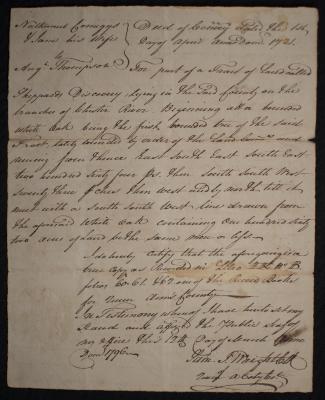 Nathaniel Comegys } Deed of Convey dated the 1st
& Jane his Wife } Day of April Anno Dom 1721.
to
Aug. Thompson } For part of a Tract of Land called
Sheppards Discovery lying in the said County on the
branches of Chester River Beginning at a bounded
white Oak being the first bounded tree of the said
Tract, lately bounded by order of the Land and
running from thence East South East South East
two hundred sixty four ps. then South South West
seventy three ps. then west and by north till it
meet with a South South West line drawn from
the aforesaid White Oak containing One hundred sixty
two acres of Land be the same more or less
I do hereby certify that the aforegoing is a
true copy as Recorded in No. B
folios 60. 61. & 62 one of the Record Books
for Queen Anns County
In Testimony whereof I have hereto set my
Hand and affixed the Public Seal of
my office this 12th Day of March Anno
Dom 1796.